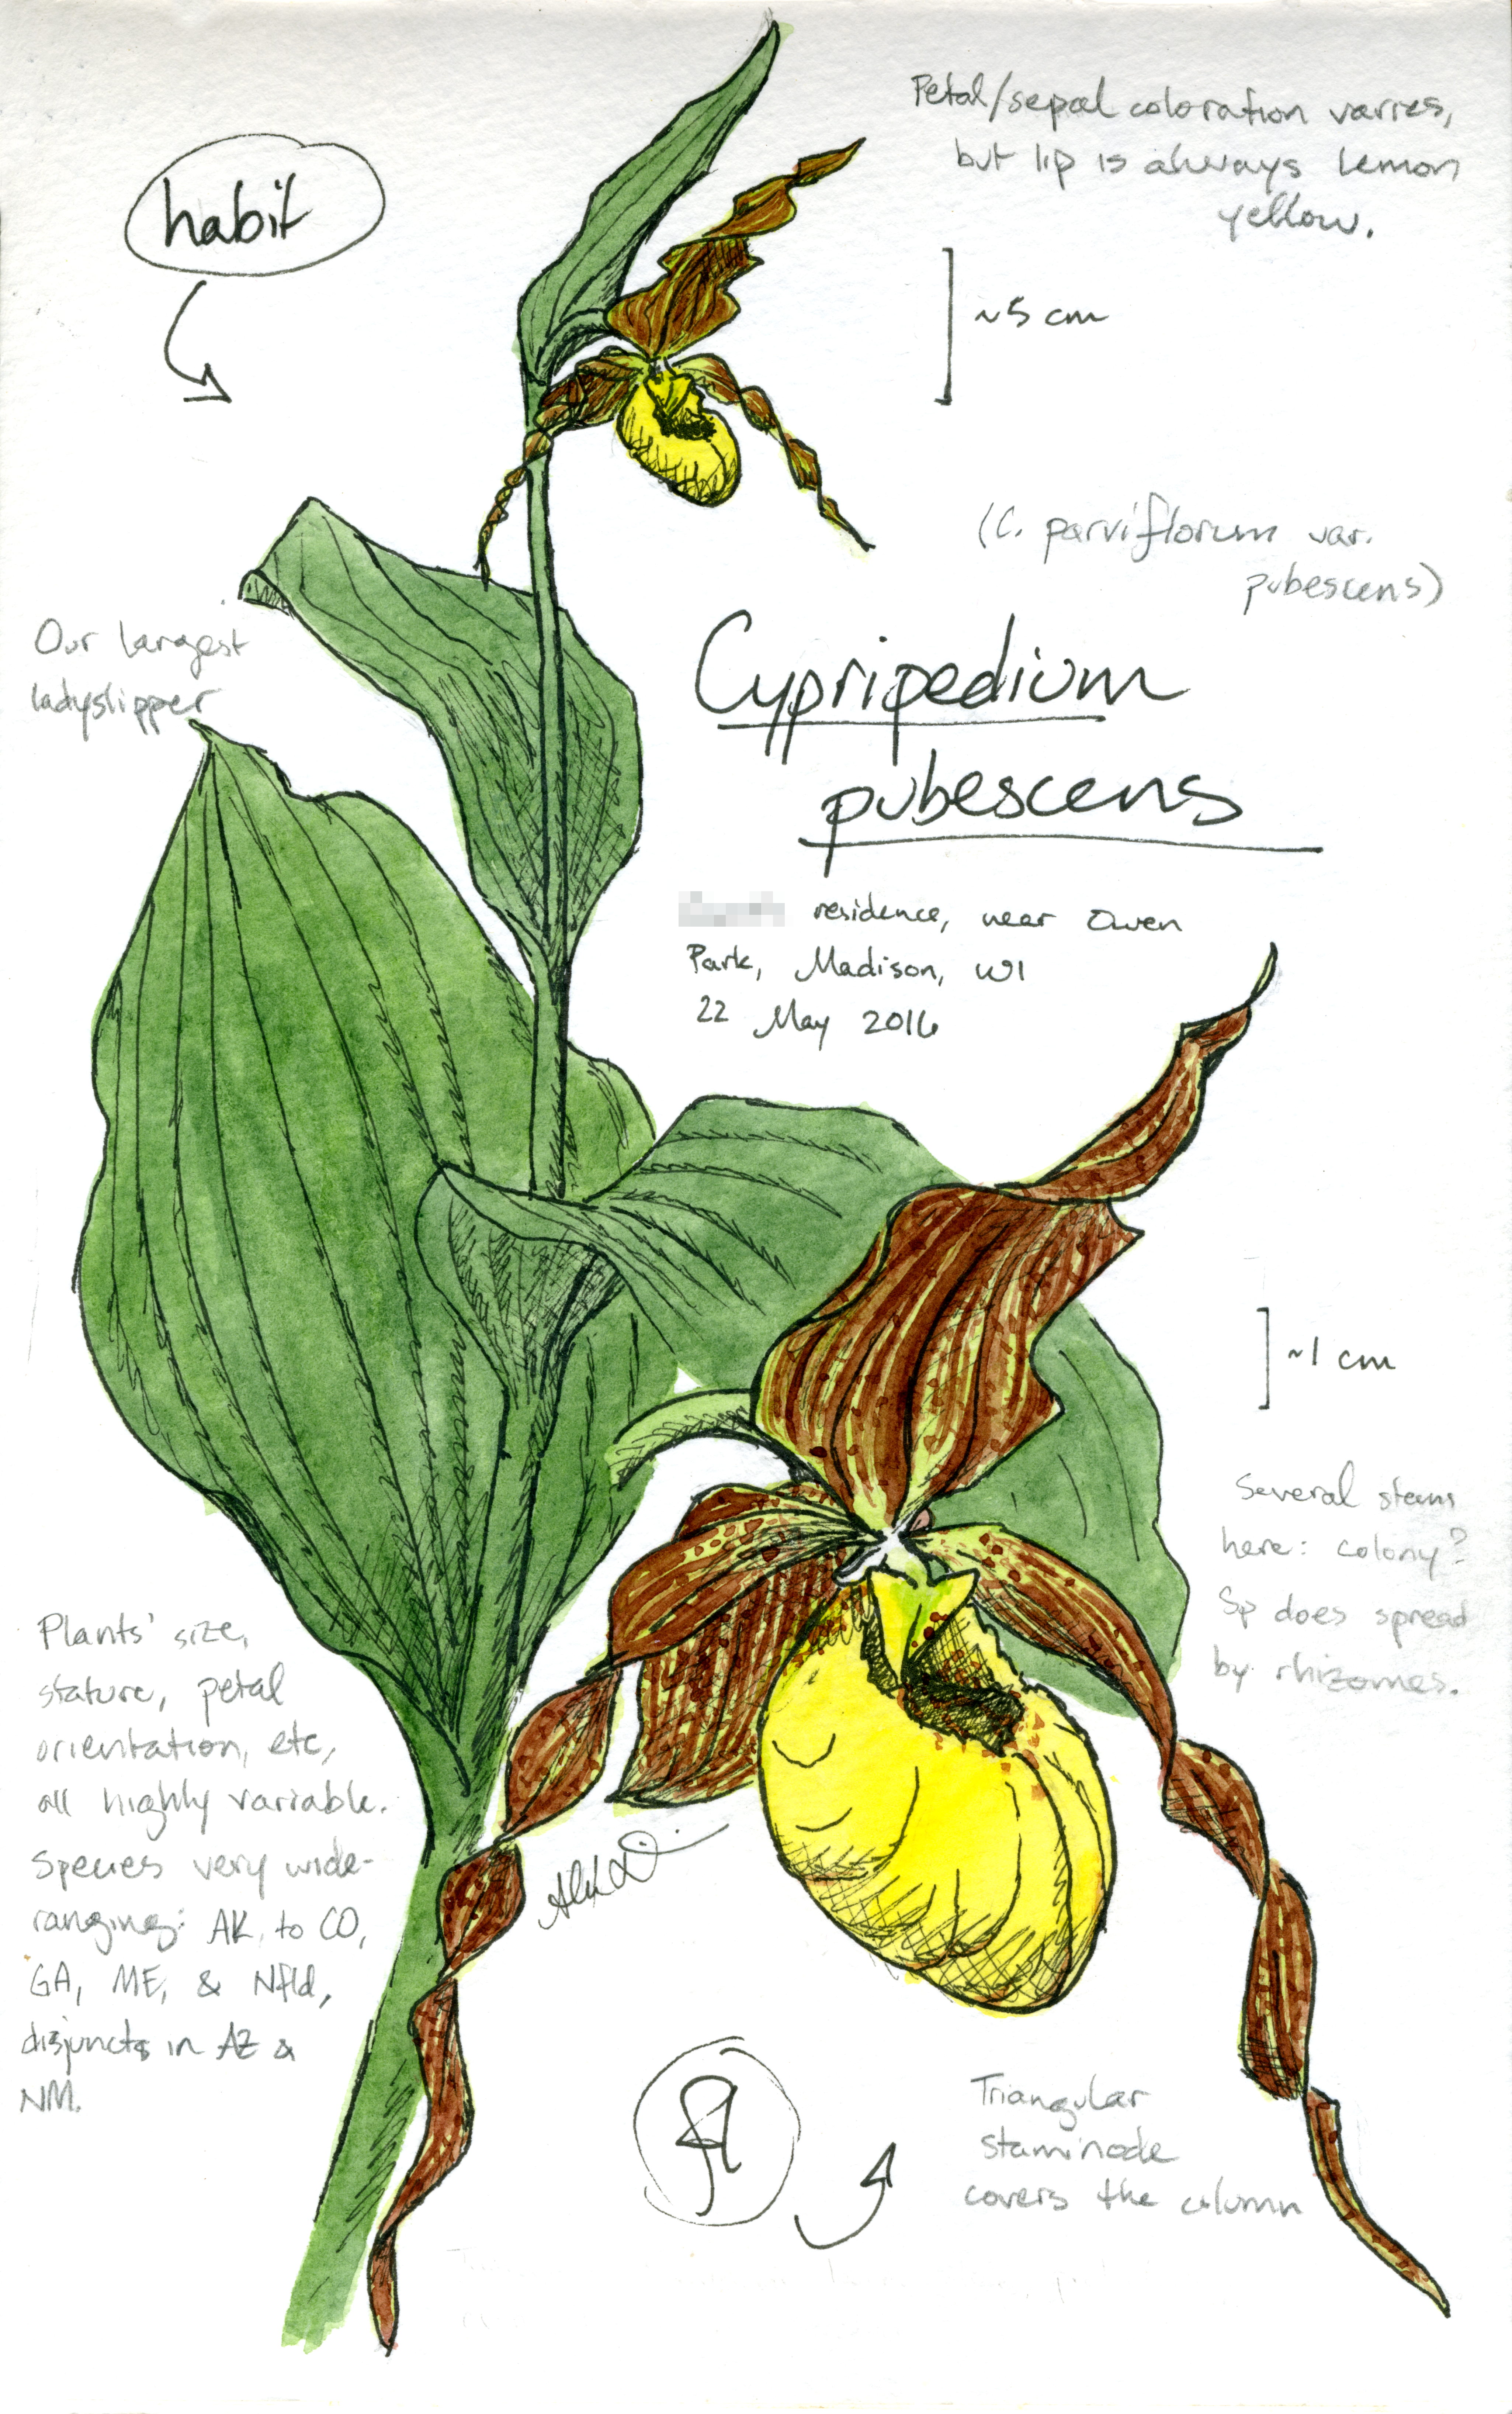 Petal/sepal coloration varies,
but lip is always lemon
yellow.
habit
~5 cm
(C. parviflorum var.
pubescens)
Our largest
ladyslipper
Cypripedium
pubescens
residence, near Owen
Park, Madison, WI
22 May 2016
~1 cm
Several stems
here: colony?
Sp does spread
by rhizomes.
Plants' size,
stature, petal
orientation, etc,
all highly variable.
Species very wide-
ranging: AK to CO,
GA, ME, & Nfld,
disjuncts in AZ &
NM.
Triangular
staminode
covers the column